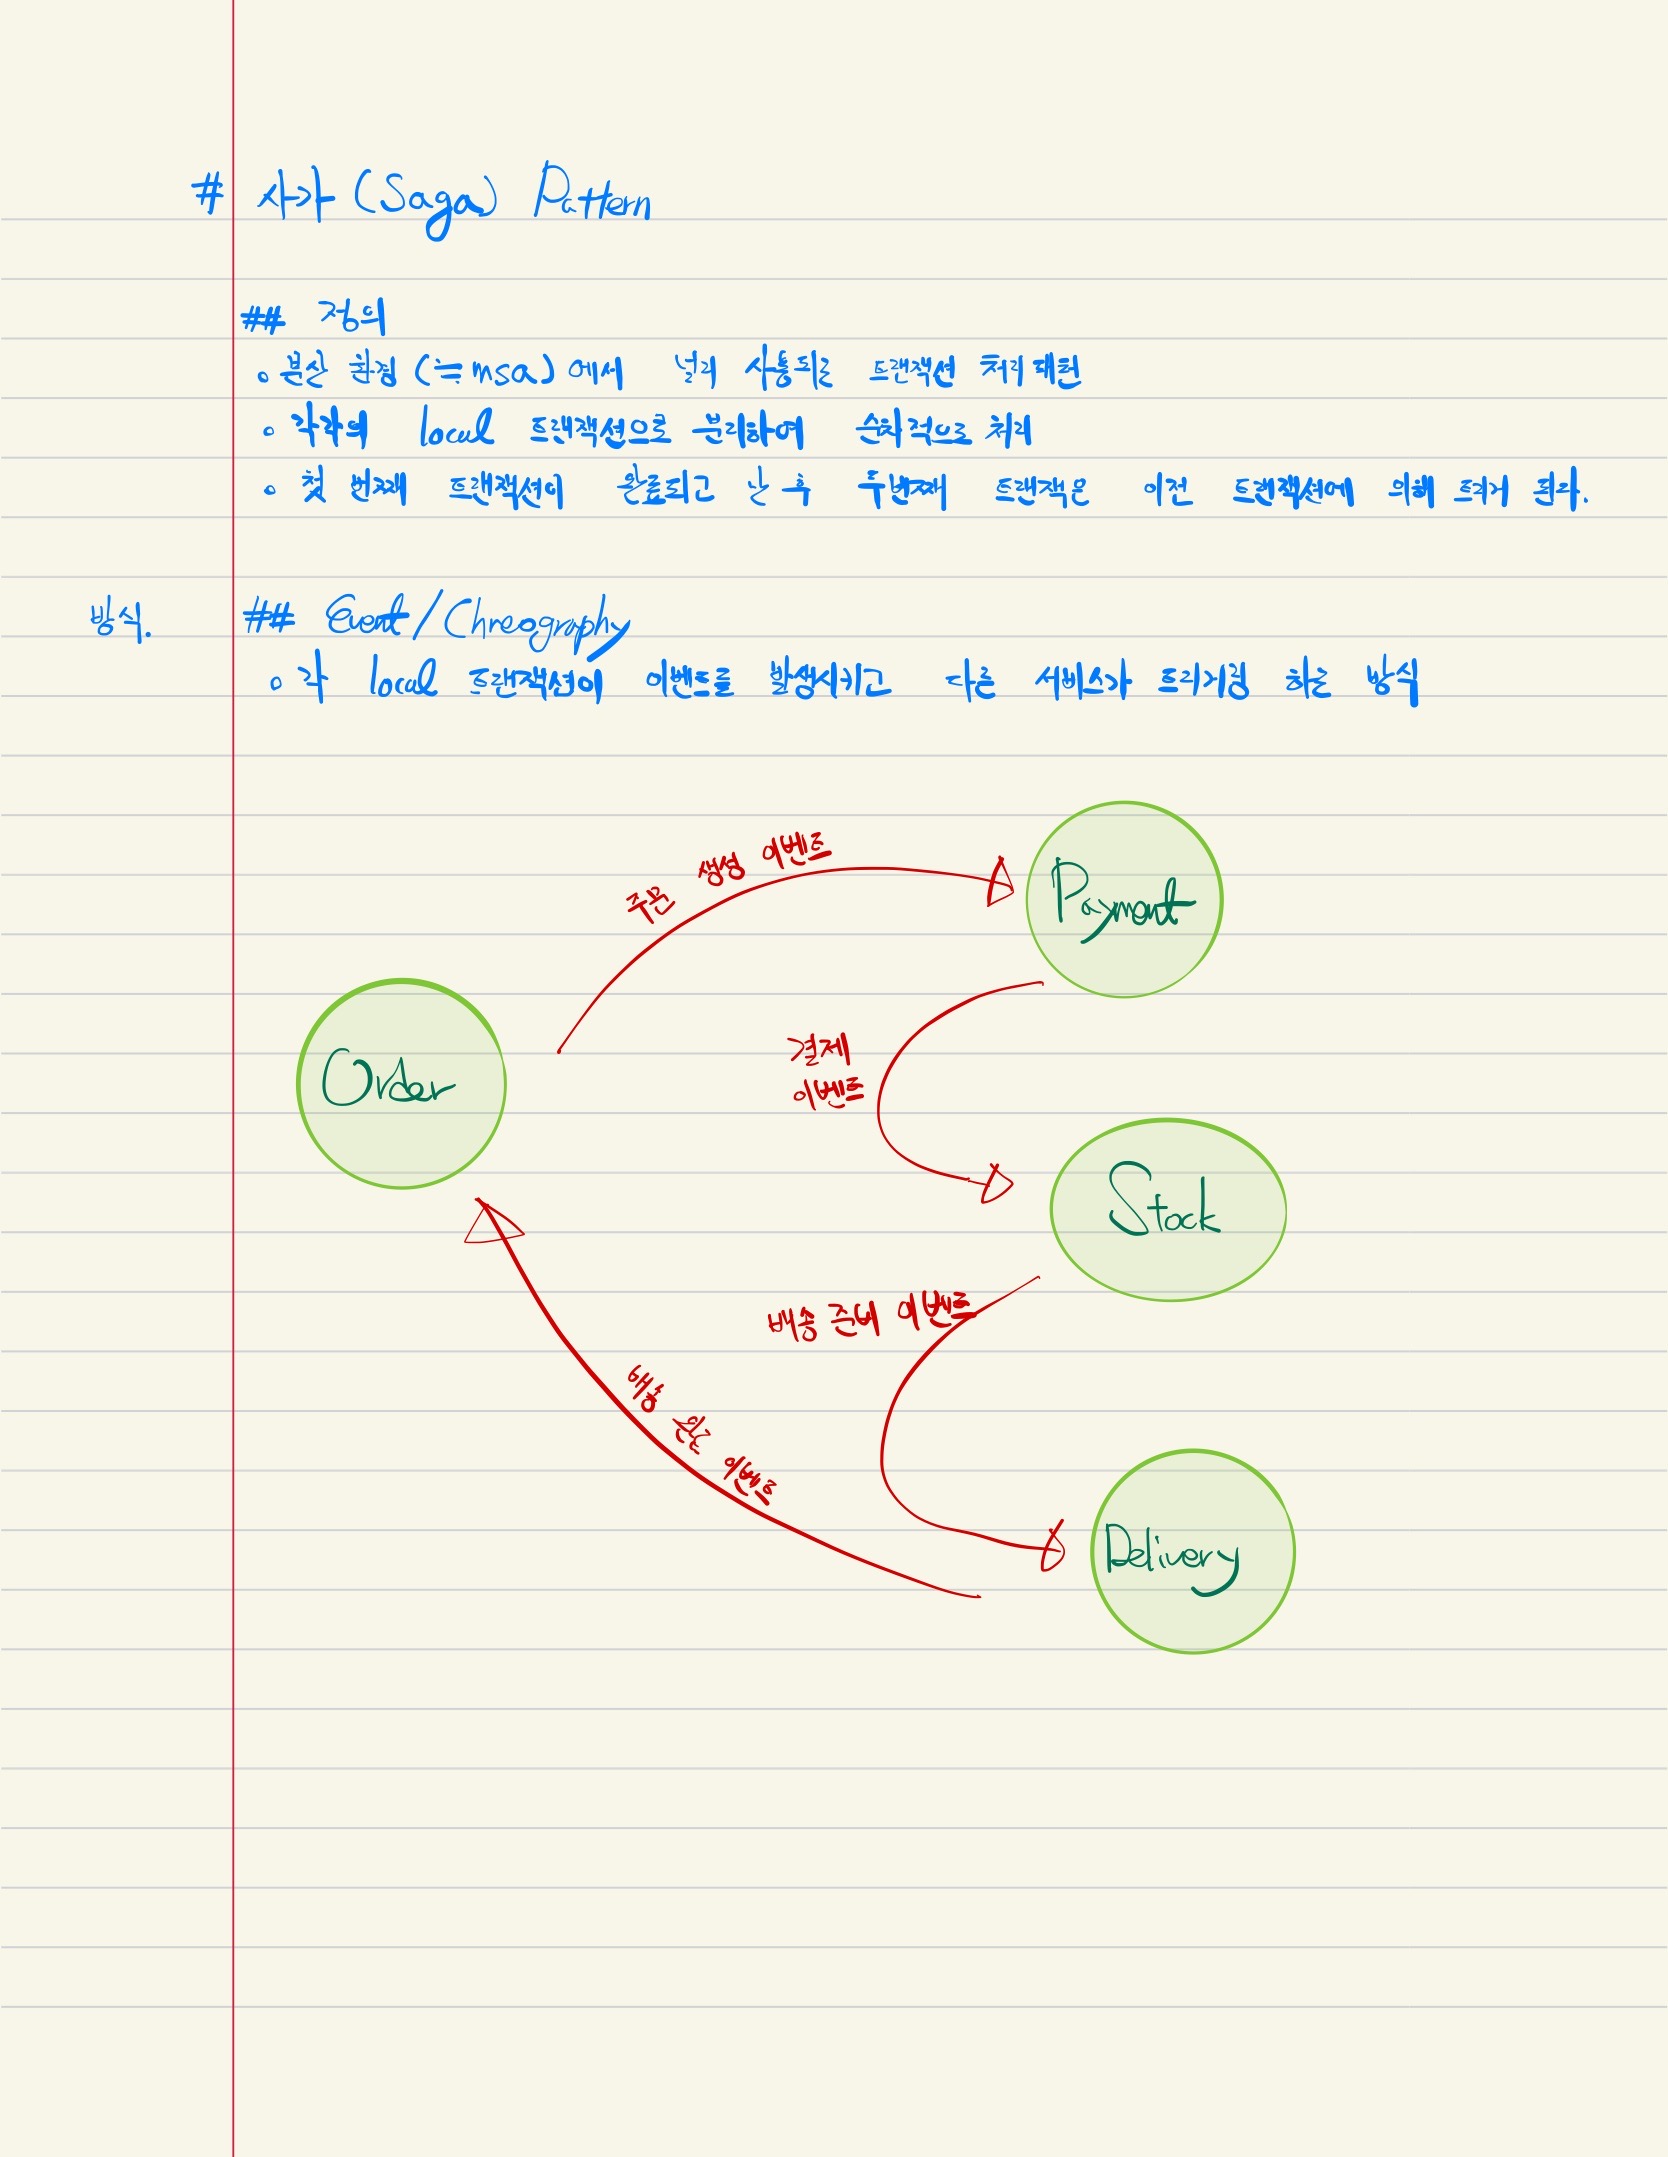 # 사가 (Saga) Pattern
## 정의
◦ 분산 환경 (≒msa) 에서 널리 사용되는 트랜잭션 처리 패턴
◦ 각각의 local 트랜잭션으로 분리하여 순차적으로 처리
◦ 첫 번째 트랜잭션이 완료되고 난 후 두번째 트랜잭은 이전 트랜잭션에 의해 트리거 된다.
방식. ## Event/Chreography
◦ 각 local 트랜잭션이 이벤트를 발생시키고 다른 서비스가 트리거링 하는 방식
주문 생성 이벤트
Payment
Order
결제
이벤트
Stock
배송 준비 이벤트
배송 완료 이벤트
Delivery